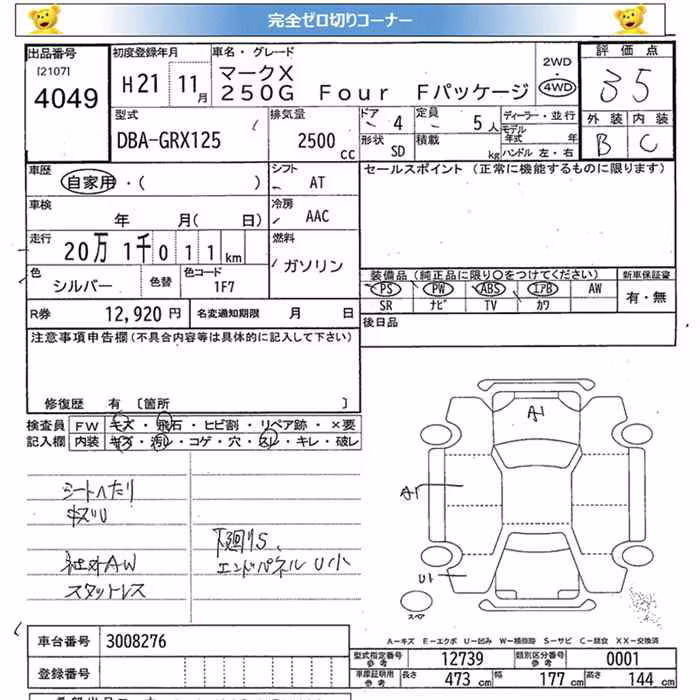 完全ゼロ切りコーナー
出品番号
[2107]
4049
初度登録年月
H21 11月
車名・グレード
マークX
250G Four Fパッケージ
2WD
・
4WD
評価点
35
外装 内装
B C
型式
DBA-GRX125
排気量
2500 cc
ドア
4
形状
SD
定員
5人
積載
kg
ディーラー・並行
モデル年式 年
ハンドル 左・右
車歴
自家用・( )
シフト
AT
セールスポイント (正常に機能するものに限ります)
車検
年 月( 日)
冷房
AAC
走行
20万 1千 0 1 1 km
燃料
ガソリン
色
シルバー
色替
色コード
1F7
装備品 (純正品に限り○をつけてください)
新車保証書
PS PW ABS エアB AW
SR ナビ TV カワ
有・無
R券 12,920 円
名変通知期限 月 日
後日品
注意事項申告欄 (不具合内容等は具体的に記入して下さい)
修復歴 有 〔箇所 〕
検査員記入欄
FW キズ・飛石・ヒビ割・リペア跡・×要
内装 キズ・汚レ・コゲ・穴・スレ・キレ・破レ
シートヘたり
キズU
社外AW
スタットレス
下廻りS、
エンドパネルU小
A1
A1
U1
スペア
A-キズ E-エクボ U-凹み W-補修跡 S-サビ C-腐食 XX-交換済
車台番号 3008276
登録番号
型式指定番号 参考 12739
類別区分番号 参考 0001
車庫証明用 参考
長さ 473 cm
幅 177 cm
高さ 144 cm